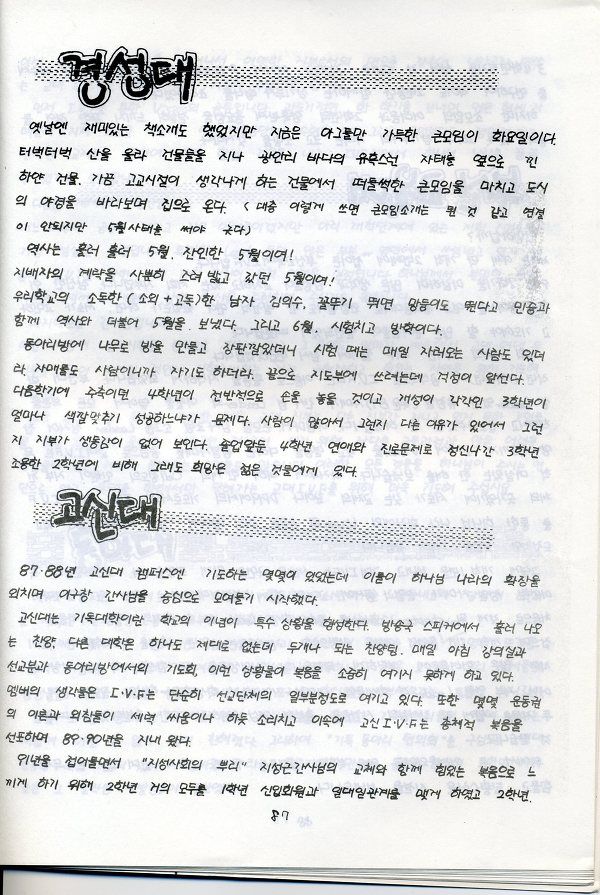 경성대
옛날엔 재미있는 책소개도 했었지만 지금은 야그들만 가득한 큰모임이 화요일이다.
터벅터벅 산을 올라 건물들을 지나 광안리 바다의 유혹스런 자태를 옆으로 낀
하얀 건물. 가끔 고교시절이 생각나게 하는 건물에서 떠들썩한 큰모임을 마치고 도시
의 야경을 바라보며 집으로 온다. (대충 이렇게 쓰면 큰모임소개는 된 것 같고 연결
이 안되지만 5월사태를 써야 겠다)
역사는 흘러 흘러 5월. 잔인한 5월이여!
지배자의 계략을 사뿐히 즈려 밟고 갔던 5월이여!
우리학교의 소독한 (소외+고독)한 남자 김의수, 꼴뚜기 뛰면 망둥이도 뛴다고 민중과
함께 역사와 더불어 5월을 보냈다. 그리고 6월. 시험치고 방학이다.
동아리방에 나무로 방을 만들고 장판깔았더니 시험 때는 매일 자러오는 사람도 있더
라. 자매들도 사람이니까 자기도 하더라. 끝으로 지도부에 쓰려는데 걱정이 앞선다.
다음학기에 주축이던 4학년이 전반적으로 손을 놓을 것이고 개성이 각각인 3학년이
얼마나 색깔맞추기 성공하느냐가 문제다. 사람이 많아서 그런지 다른 이유가 있어서 그런
지 지부가 생동감이 없어 보인다. 졸업앞둔 4학년 연애와 진로문제로 정신나간 3학년
조용한 2학년에 비해 그래도 희망은 젊은 것들에게 있다.
고신대
87·88년 고신대 캠퍼스엔 기도하는 몇명이 있었는데 이들이 하나님 나라의 확장을
외치며 간사님을 중심으로 모여들기 시작했다.
고신대는 기독대학이란 학교의 이념이 특수 상황을 형성하다. 방송국 스피커에서 흘러 나오
는 찬양, 다른 대학은 하나도 제대로 없는데 두개나 되는 찬양팀. 매일 아침 강의실과
선교분과 동아리방에서의 기도회, 이런 상황들이 복음을 소중히 여기지 못하게 하고 있다.
멤버의 생각들은 I.V.F는 단순히 선교단체의 일부분정도로 여기고 있다. 또한 몇몇 운동권
의 이론과 외침들이 세력 싸움이나 하듯 소리치고 이속에 고신I.V.F는 총체적 복음을
선포하며 89·90년을 지내 왔다.
91년을 접어들면서 "지성사회의 뿌리" 지성근간사님의 교체와 함께 힘있는 복음으로 느
끼게 하기 위해 2학년 거의 모두를 1학년 신입회원과 일대일관계를 맺게 하였고 2학년.
87